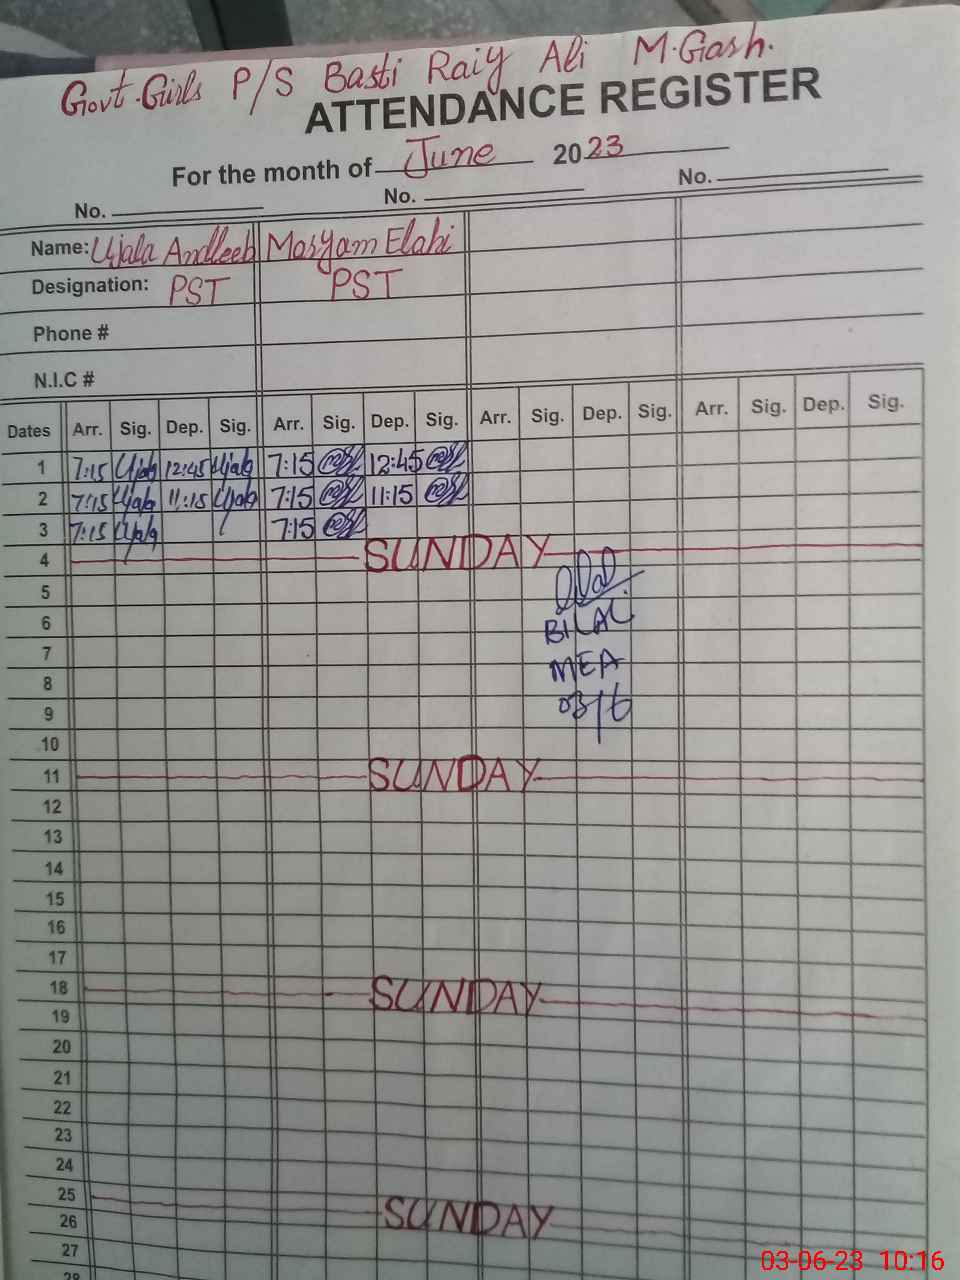 Govt. Girls P/S Basti Raiy Ali M. Gash.
ATTENDANCE REGISTER
For the month of June 2023
No. No. No.
Name: Ujala Andleeb Maryam Elahi
Designation: PST PST
Phone #
N.I.C #
Dates Arr. Sig. Dep. Sig. Arr. Sig. Dep. Sig. Arr. Sig. Dep. Sig. Arr. Sig. Dep. Sig.
1 7:15 Ujala 12:45 Ujala 7:15 12:45
2 7:15 Ujala 11:15 Ujala 7:15 11:15
3 7:15 Ujala 7:15
4 SUNDAY
5
6 BILAL
7 MEA
8
9 03/6
10
11 SUNDAY
12
13
14
15
16
17
18 SUNDAY
19
20
21
22
23
24
25 SUNDAY
26
27
28
03-06-23 10:16